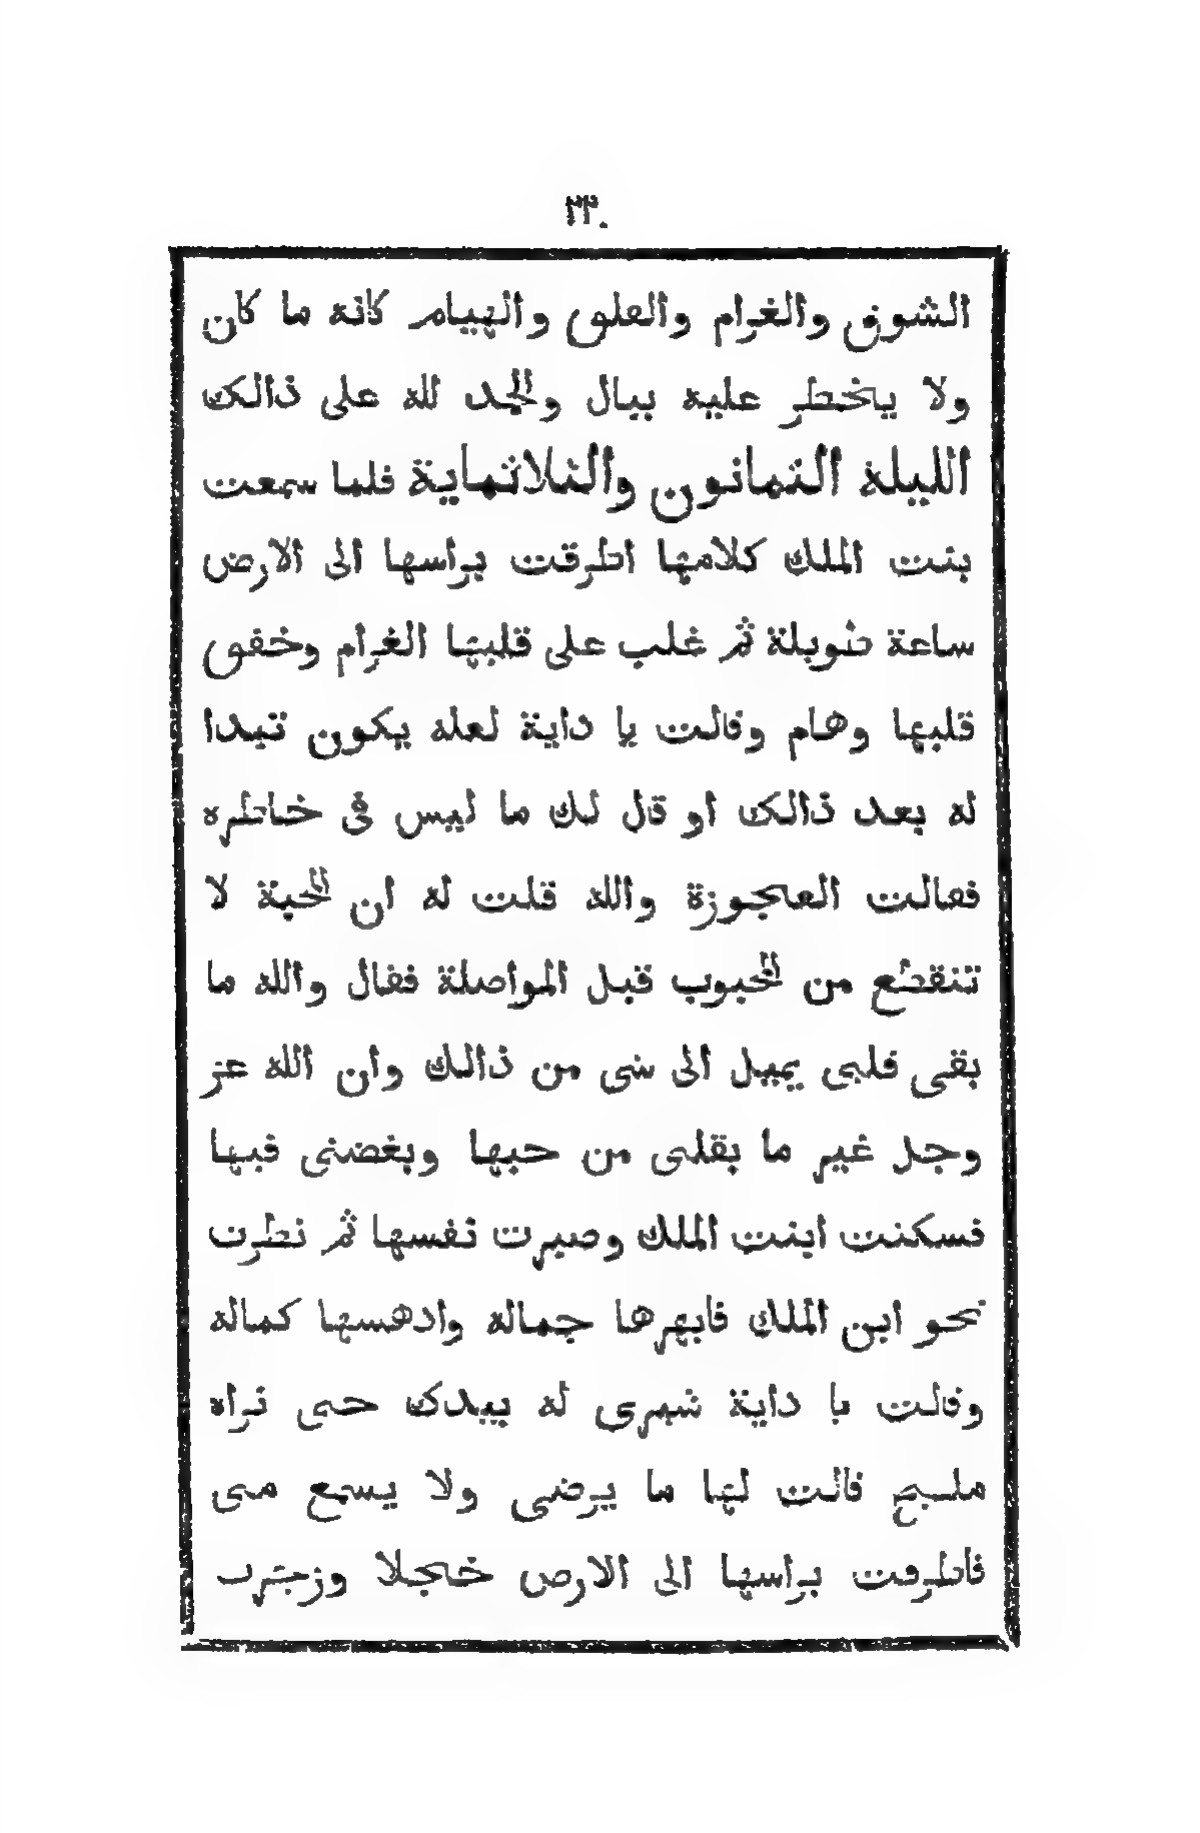 ٣٣٠
الشوق والغرام والقلق والهيام كانه ما كان
ولا يخطر عليه ببال والحمد لله على ذالك
الليلة الثمانون والثلاثماية فلما سمعت
بنت الملك كلامها اطرقت براسها الى الارض
ساعة طويلة ثم غلب على قلبها الغرام وخفق
قلبها وهام وقالت يا داية لعله يكون تبدا
له بعد ذالك او قال لك ما ليس فى خاطره
فقالت العجوزة والله قلت له ان المحبة لا
تنقطع من المحبوب قبل المواصلة فقال والله ما
بقى قلبى يميل الى شى من ذالك وان الله عز
وجل غير ما بقلبى من حبها وبغضنى فيها
فسكنت ابنت الملك وصبرت نفسها ثم نظرت
نحو ابن الملك فابهرها جماله وادهشها كماله
وقالت يا داية شهرى له بيدك حتى نراه
مليح قالت لها ما يرضى ولا يسمع منى
فاطرقت براسها الى الارض خجلا وزجرت